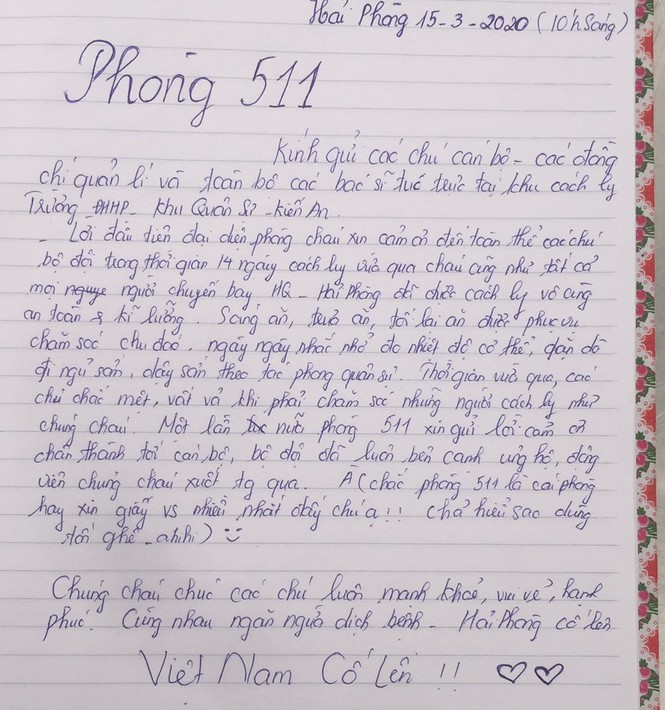 Hải Phòng 15-3-2020 (10h sáng)
Phòng 511
Kính gửi các chú cán bộ - các đồng
chí quản lí và toàn bộ các bác sĩ túc trực tại khu cách ly
Trường ĐHHP - Khu Quân Sự - Kiến An.
- Lời đầu tiên đại diện phòng cháu xin cảm ơn đến toàn thể các chú
bộ đội trong thời gian 14 ngày cách ly vừa qua cháu cũng như tất cả
mọi người chuyến bay HQ - Hải Phòng đã được cách ly vô cùng
an toàn & kĩ lưỡng. Sáng ăn, trưa ăn, tối lại ăn được phục vụ
chăm sóc chu đáo, ngày ngày nhắc nhở đo nhiệt độ cơ thể, dặn dò
đi ngủ sớm, dậy sớm theo tác phong quân sự. Thời gian vừa qua, các
chú chắc mệt, vất vả khi phải chăm sóc những người cách ly như
chúng cháu. Một lần nữa phòng 511 xin gửi lời cảm ơn
chân thành tới cán bộ, bộ đội đã luôn bên cạnh ủng hộ, động
viên chúng cháu suốt tg qua. À (chắc phòng 511 là cái phòng
hay xin giấy vs nhiều nhất đấy chú ạ!! chả hiểu sao dùng
tốn ghê - ahihi) :)
Chúng cháu chúc các chú luôn mạnh khoẻ, vui vẻ, hạnh
phúc. Cùng nhau ngăn ngừa dịch bệnh - Hải Phòng cố lên
Việt Nam Cố Lên !! ♡♡